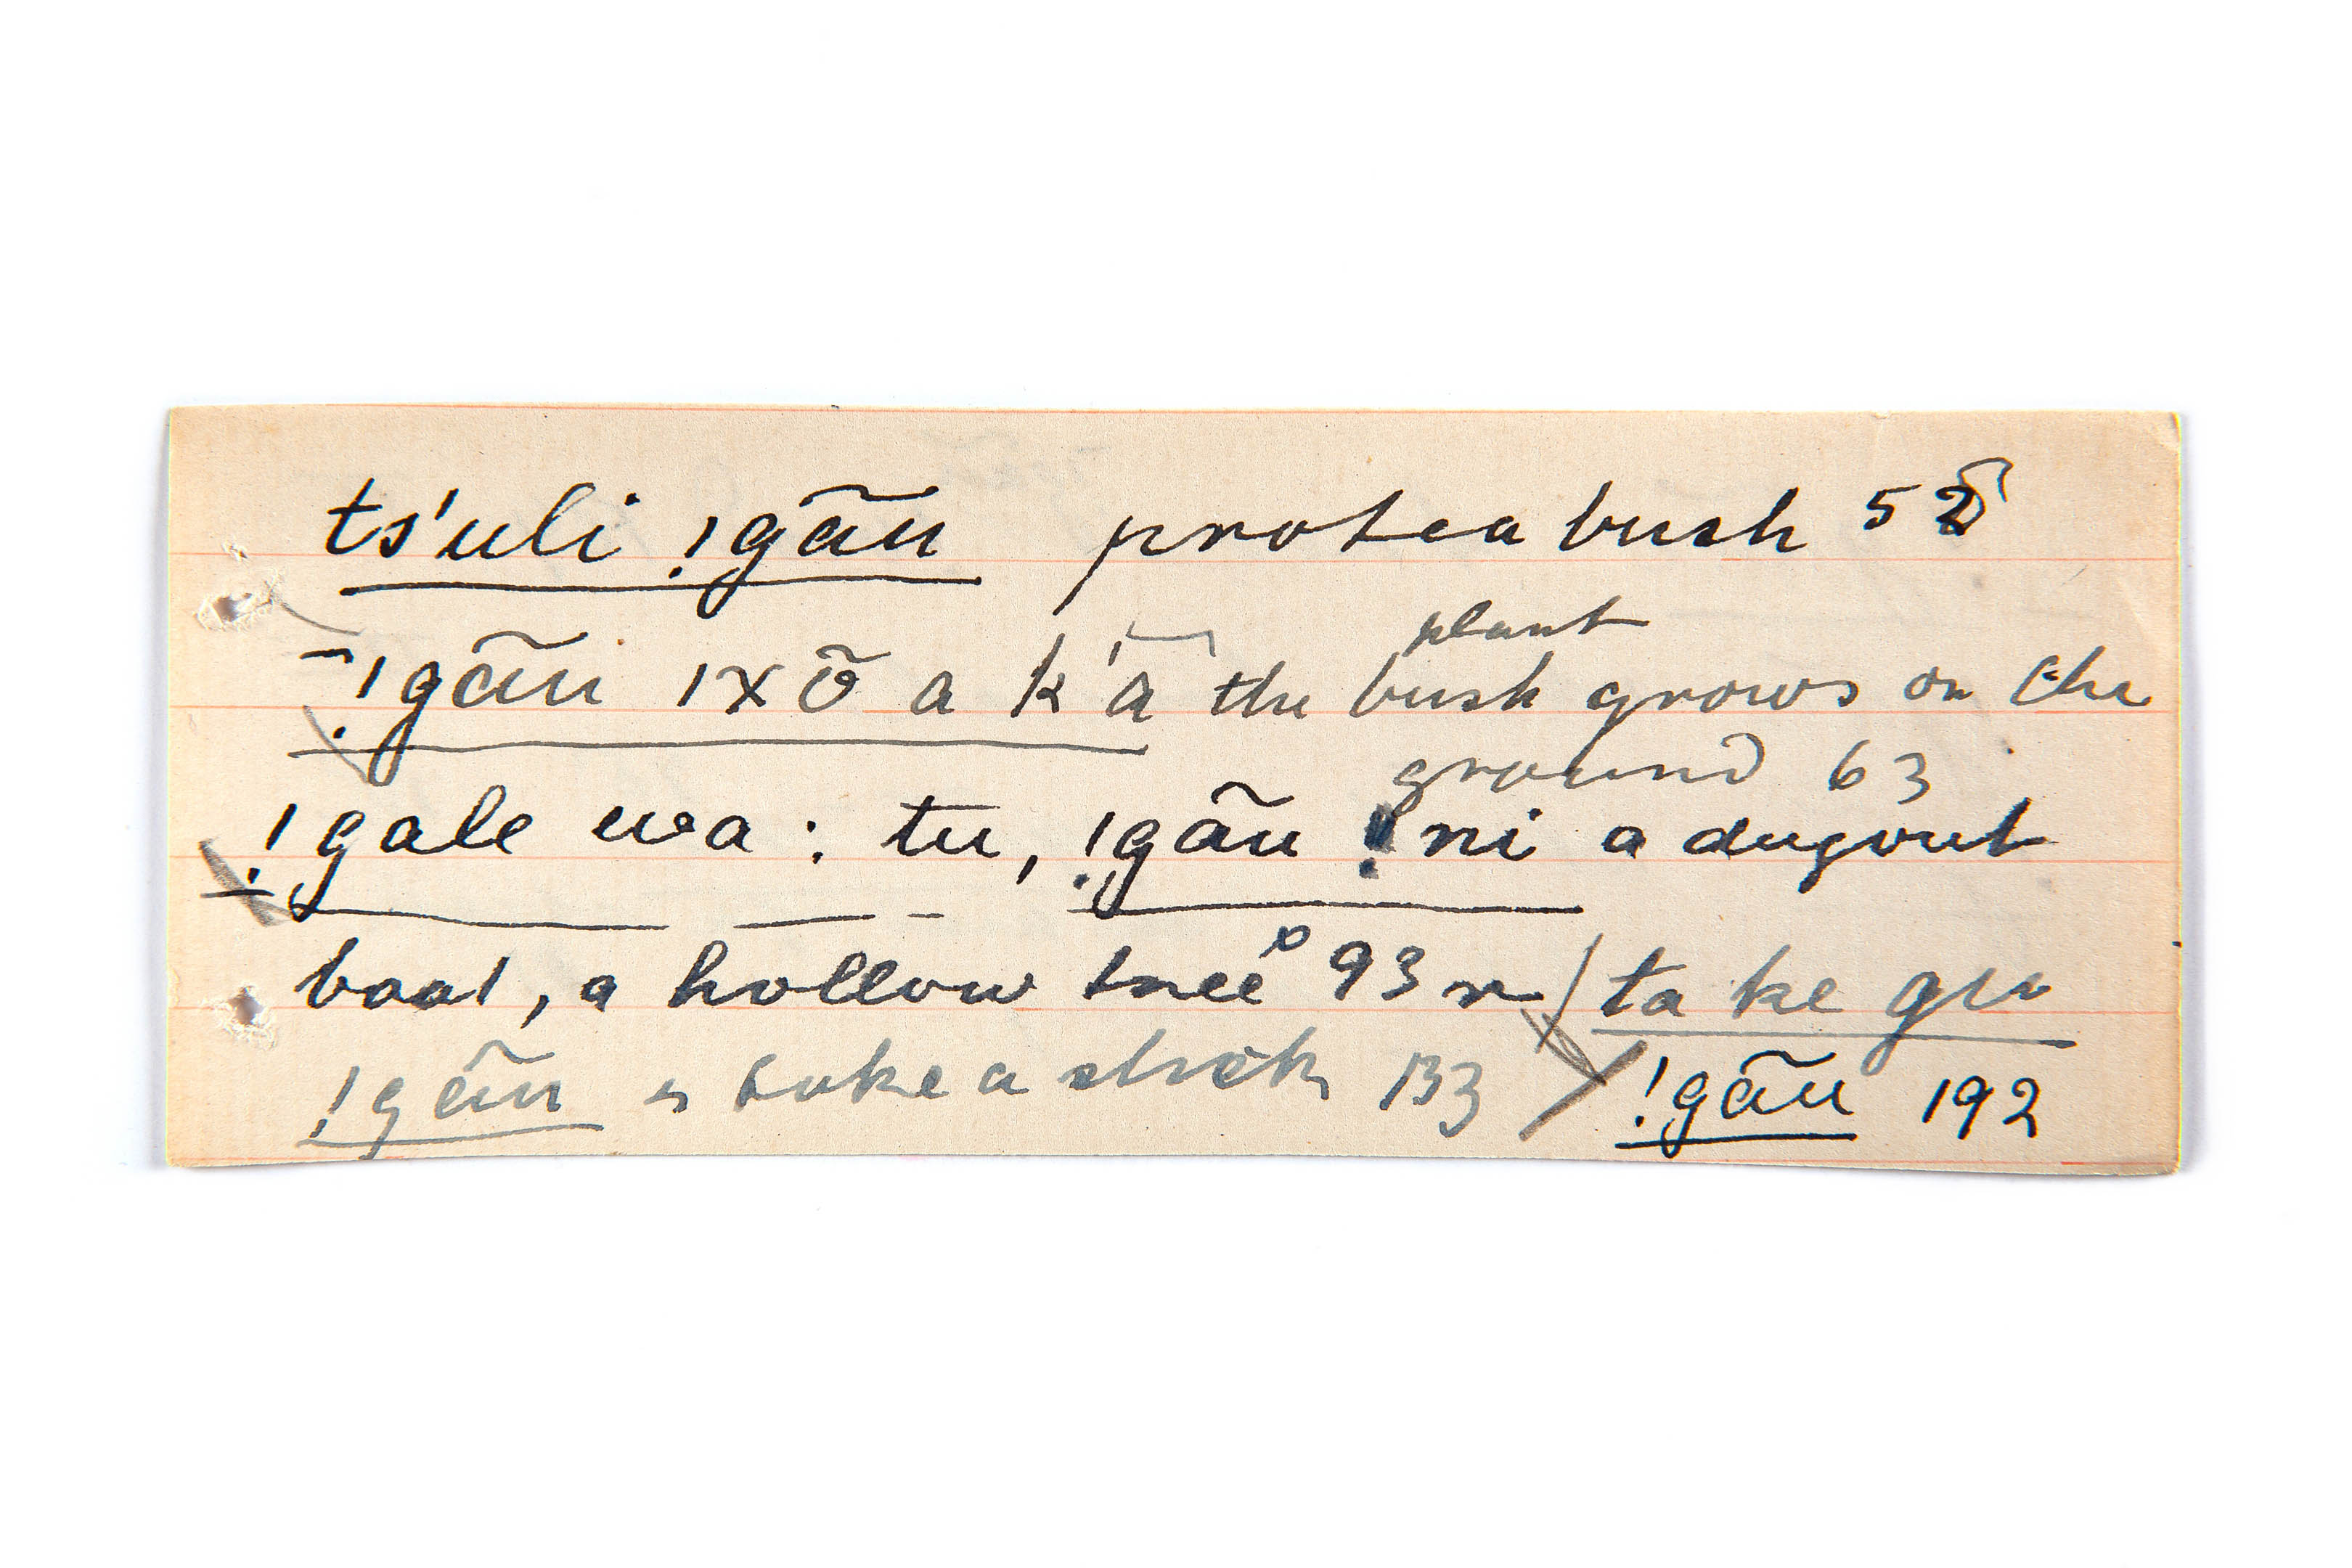 ts'uli !gãu protea bush 52
plant
!gãu ǀxõ a k'a the bush grows on the
ground 63
!gale wa: tu, !gãu !ni a dugout
boat, a hollow tree 93 r / ta ke gu
!gãu s take a stick 133 / !gãu 192